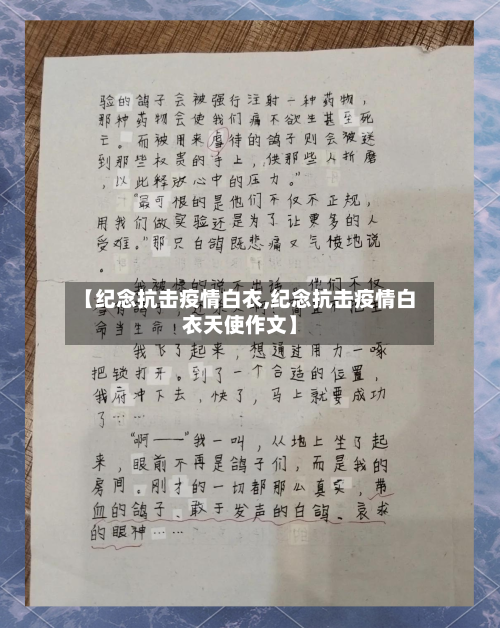 验的鸽子会被强行注射一种药物，
那种药物会使我们痛不欲生甚至死
亡。而被用来虐待的鸽子则会被送
到那些权贵的手上，供那些人折磨
，以此释放心中的压力。”
“最可恨的是他们不仅不正规，
用我们做实验还是为了让更多的人
受难。”那只白鸽既悲痛又气愤地说
。
【纪念抗击疫情白衣,纪念抗击疫情白
衣天使作文】
命当生命！
我飞了起来，想通过用力一啄
把锁打开。到了一个合适的位置，
我俯冲下去，快了，马上就要成功
了……
“啊——”我一叫，从地上坐了起
来，眼前不再是鸽子们，而是我的
房间。刚才的一切都那么真实，带
血的鸽子、敢于发声的白鸽、哀求
的眼神……